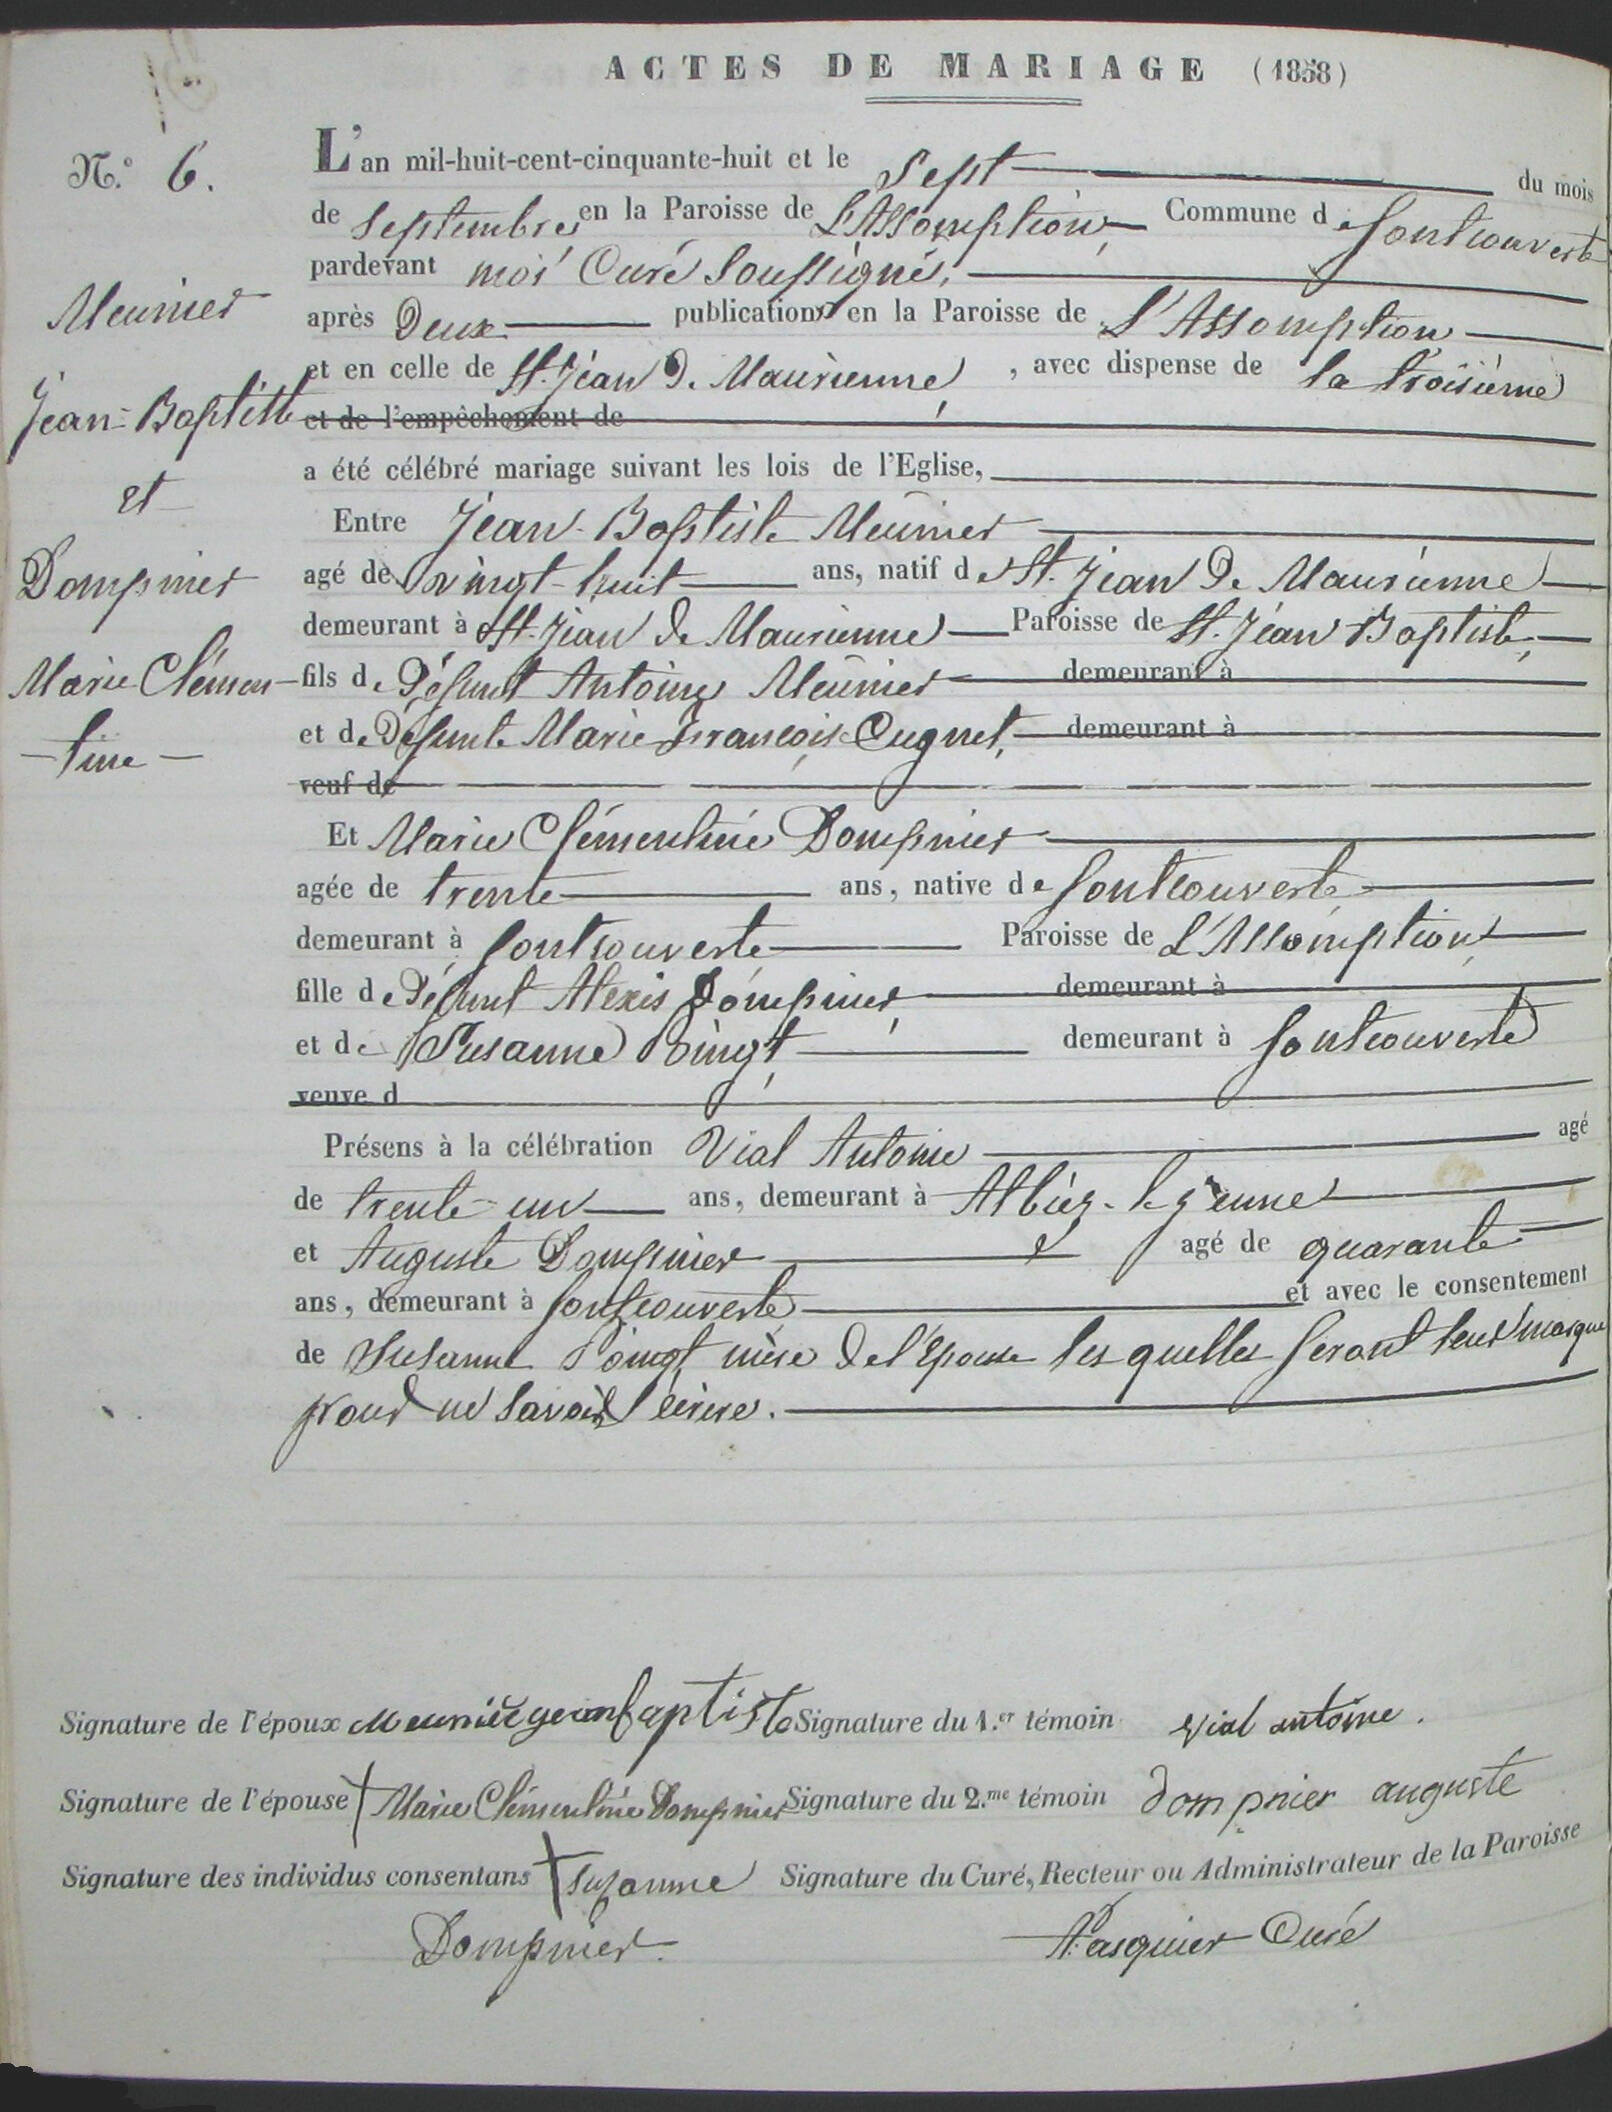 ACTES DE MARIAGE (1858)
N.o 6.
Meunier
Jean-Baptiste
et
Dompnier
Marie Clémen-
-tine-
L'an mil-huit-cent-cinquante-huit et le Sept du mois
de Septembre en la Paroisse de L'Assomption, Commune de fontcouverte
pardevant moi Curé Soussigné,
après Deux publications en la Paroisse de L'Assomption
et en celle de St. Jean De Maurienne, avec dispense de la troisième
et de l'empêchement de
a été célébré mariage suivant les lois de l'Eglise,
Entre Jean-Baptiste Meunier
agé de vingt-huit ans, natif de St. Jean De Maurienne
demeurant à St. Jean de Maurienne Paroisse de St. Jean Baptiste,
fils de Défunt Antoine Meunier demeurant à
et de Défunte Marie Françoise Cugnet, demeurant à
veuf de
Et Marie Clémentine Dompnier
agée de trente ans, native de fontcouverte
demeurant à fontcouverte Paroisse de L'Assomption,
fille de Défunt Alexis Dompnier, demeurant à
et de Susanne Poingt, demeurant à fontcouverte
veuve d
Présens à la célébration Vial Antoine agé
de trente-un ans, demeurant à Albiez-le-jeune
et Auguste Dompnier agé de quarante
ans, demeurant à fontcouverte et avec le consentement
de Susanne Poingt mère de l'Epouse les quelles feront leur marque
pour ne savoir écrire.
Signature de l'époux Meunier jeanbaptiste Signature du 1.er témoin vial antoine.
Signature de l'épouse † Marie Clémentine Dompnier Signature du 2.me témoin dompnier auguste
Signature des individus consentans † Suzanne Signature du Curé, Recteur ou Administrateur de la Paroisse
Dompnier. Pasquier Curé